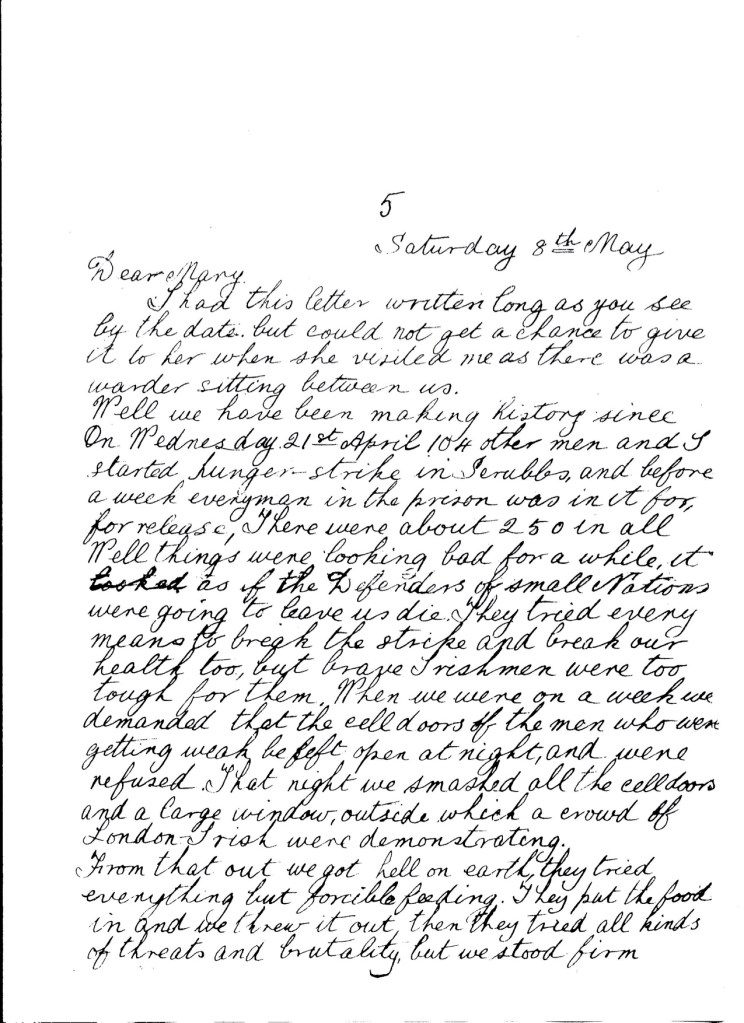 5
Saturday 8th May
Dear Mary
I had this letter written long as you see
by the date. but could not get a chance to give
it to her when she visited me as there was a
warder sitting between us.
Well we have been making history since
On Wednesday 21st April 104 other men and I
started hunger-strike in Scrubbs, and before
a week everyman in the prison was in it for,
for release, There were about 250 in all
Well things were looking bad for a while, it
looked as if the Defenders of small Nations
were going to leave us die. They tried every
means to break the strike and break our
health too, but brave Irishmen were too
tough for them. When we were on a week we
demanded that the cell doors of the men who were
getting weak be left open at night, and were
refused. That night we smashed all the cell doors
and a large window, outside which a crowd of
London-Irish were demonstrating.
From that out we got hell on earth, they tried
everything but forcible feeding. They put the food
in and we threw it out, then they tried all kinds
of threats and brutality, but we stood firm